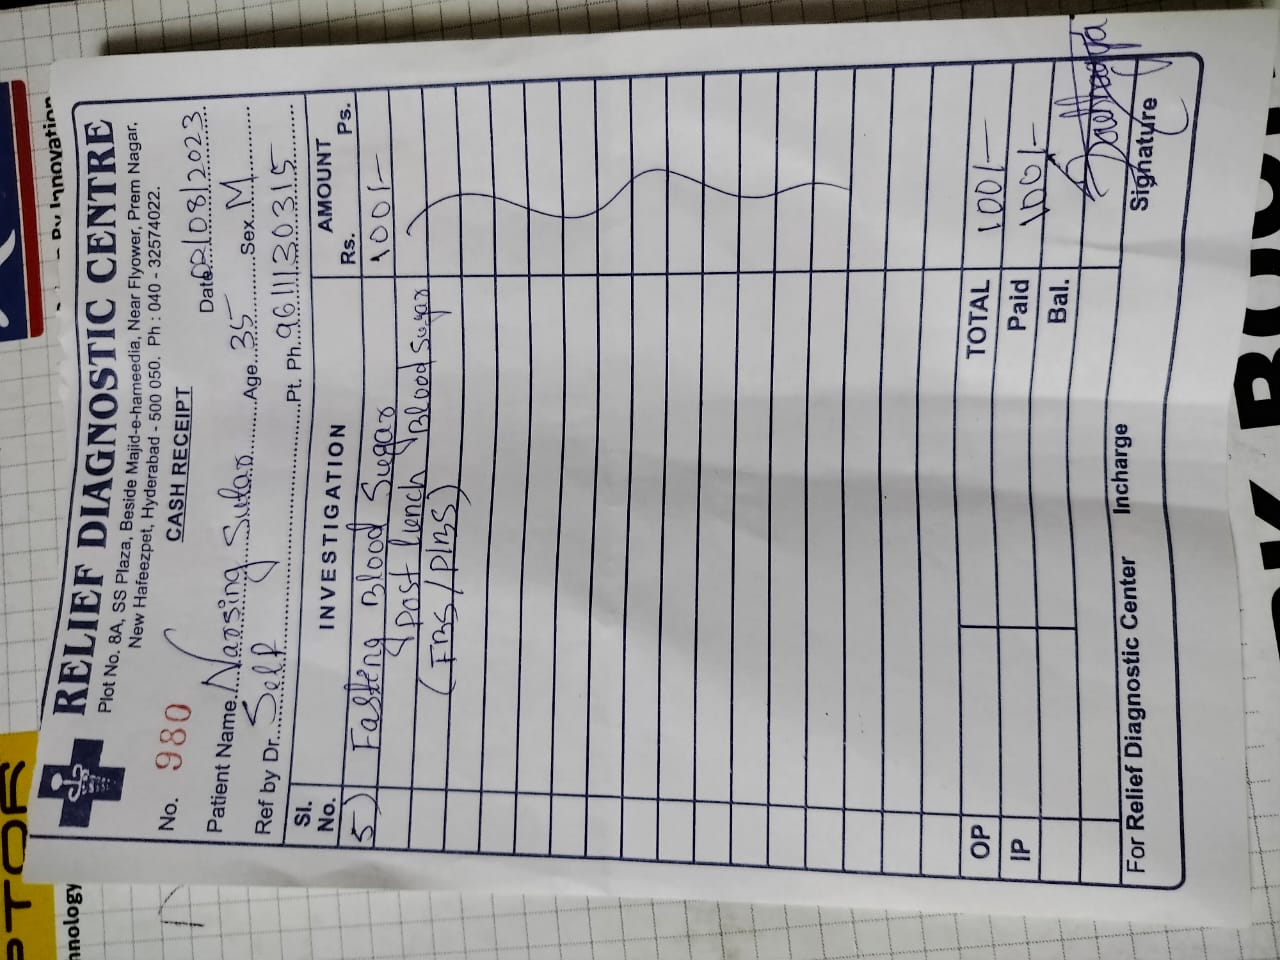 RELIEF DIAGNOSTIC CENTRE
Plot No. 8A, SS Plaza, Beside Majid-e-hameedia, Near Flyower, Prem Nagar,
New Hafeezpet, Hyderabad - 500 050. Ph : 040 - 32574022.
CASH RECEIPT
No. 980 Date 02/08/2023
Patient Name Narsing Sutar Age 35 Sex M
Ref by Dr. Self Pt. Ph. 9611130315
Sl. No. INVESTIGATION AMOUNT
Rs. Ps.
5) Fasting Blood Sugar 100/-
& post lunch Blood Sugar
(FBS/PLBS)
OP TOTAL 100/-
IP Paid 100/-
Bal.
For Relief Diagnostic Center Incharge Signature
By Innovation
PTOR
hnology